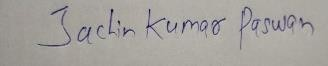 Sachin Kumar Paswan